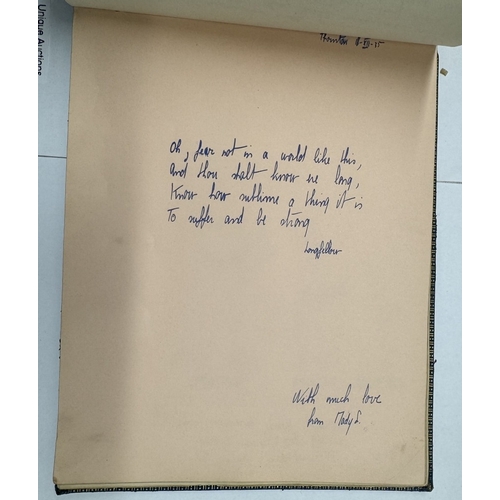 Unique Auctions
Thornton 8-VII-35
Oh, fear not in a world like this,
and thou shalt know ere long,
Know how sublime a thing it is
To suffer and be strong
Longfellow
With much love
from Mady S.